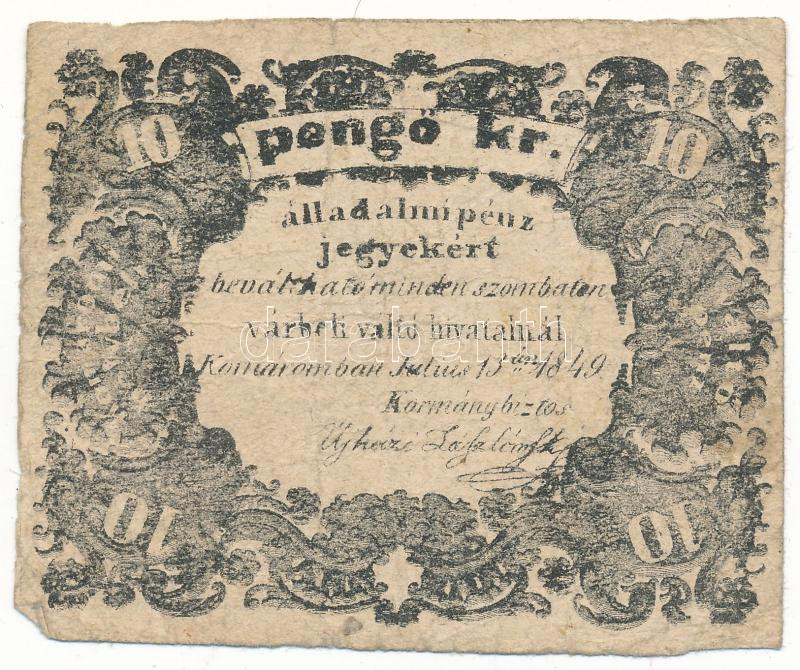 10 10
pengő kr.
álladalmi pénz
jegyekért
beváltható minden szombaton
várbeli váltó hivatalnál
Komáromban Julius 15 1849
Kormánybiztos
Ujházi László mk
10 10
darabanth